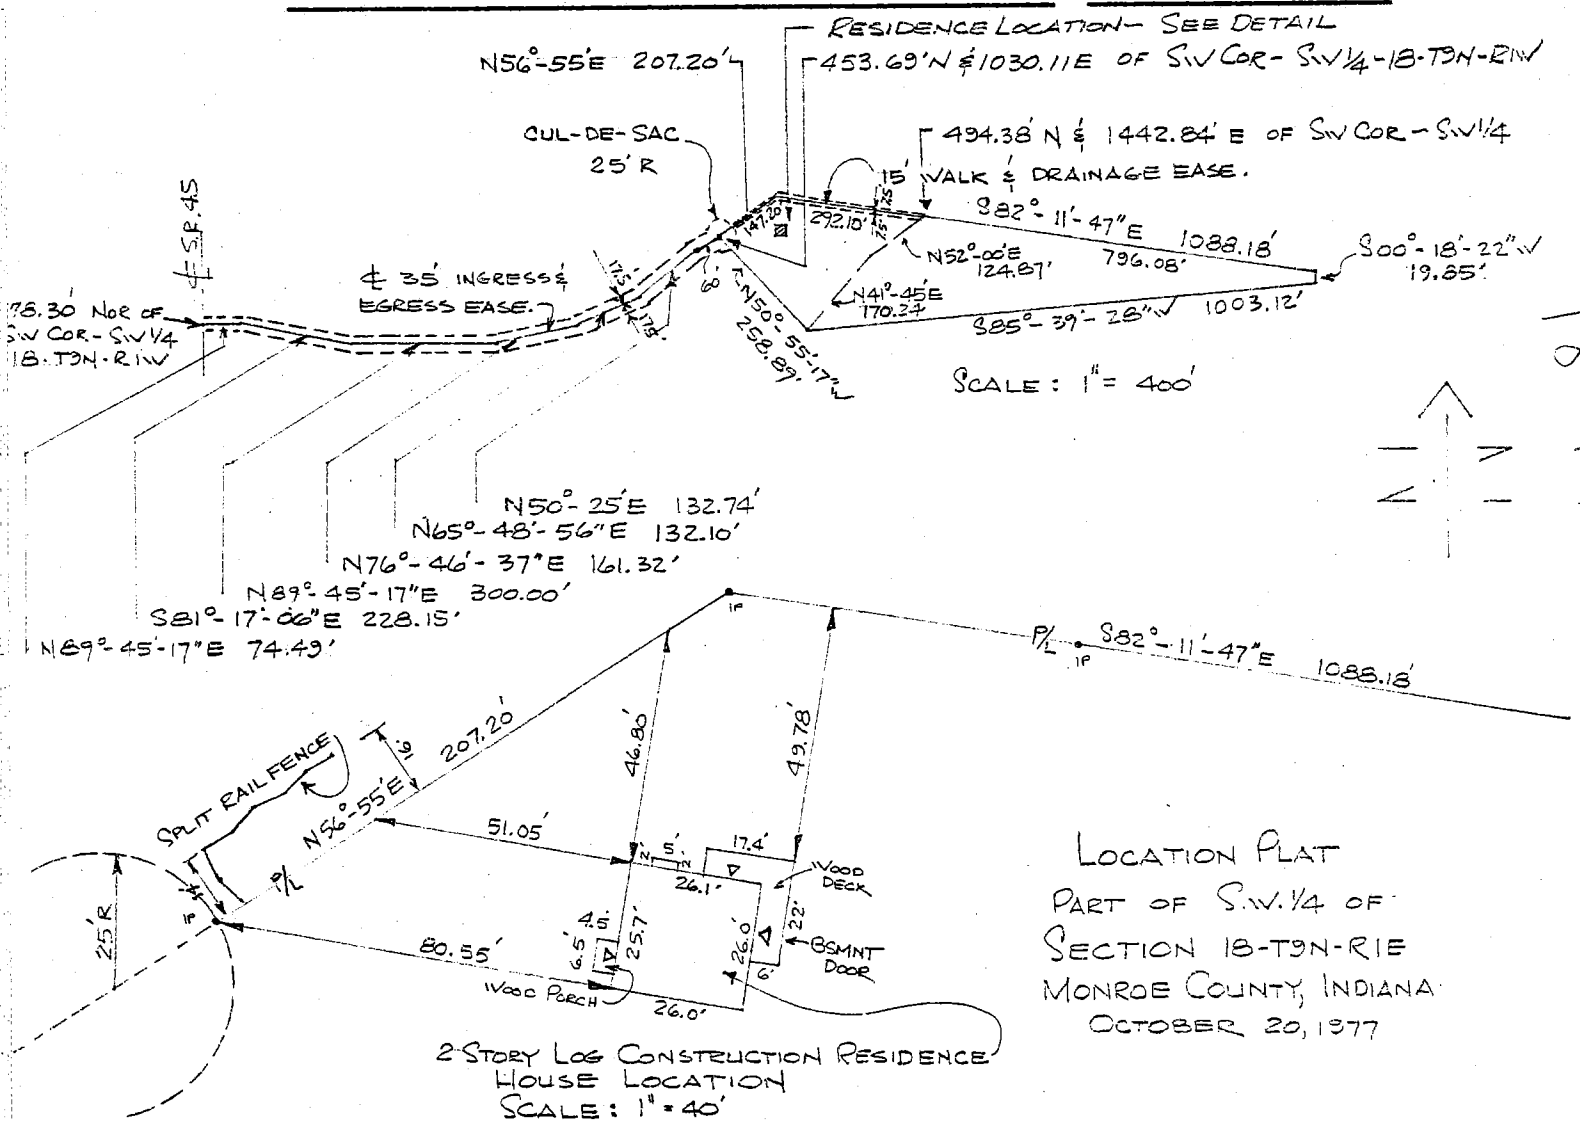 RESIDENCE LOCATION- SEE DETAIL
N56°-55'E 207.20'
453.69'N & 1030.11E OF SW COR- SW 1/4-18-T9N-R1W
CUL-DE-SAC
25' R
494.38' N & 1442.84' E OF SW COR-SW 1/4
15' WALK & DRAINAGE EASE.
7.5'
7.5'
147.20'
292.10'
S82°-11'-47"E 1088.18'
796.08'
S00°-18'-22"W
19.85'
N52°-00'E
124.87'
N41°-45'E
170.24'
S85°-39'-28"W 1003.12'
N50°-55'-17"W
258.89'
60'
17.5'
17.5'
℄ S.R. 45
℄ 35' INGRESS &
EGRESS EASE.
78.30' NOR OF
SW COR-SW 1/4
18-T9N-R1W
SCALE: 1" = 400'
N
N50°-25'E 132.74'
N65°-48'-56"E 132.10'
N76°-46'-37"E 161.32'
N89°-45'-17"E 300.00'
S81°-17'-06"E 228.15'
N89°-45'-17"E 74.49'
IP
P/L
IP
S82°-11'-47"E 1088.18'
207.20'
N56°-55'E
P/L
SPLIT RAIL FENCE
46.80'
49.78'
51.05'
2'
5'
2'
17.4'
26.1'
WOOD
DECK
25'R
IP
80.55'
4.5'
6.5'
25.7'
26.0'
22'
6'
BSMNT
DOOR
WOOD PORCH
26.0'
2-STORY LOG CONSTRUCTION RESIDENCE
HOUSE LOCATION
SCALE: 1" = 40'
LOCATION PLAT
PART OF S.W. 1/4 OF
SECTION 18-T9N-R1E
MONROE COUNTY, INDIANA
OCTOBER 20, 1977